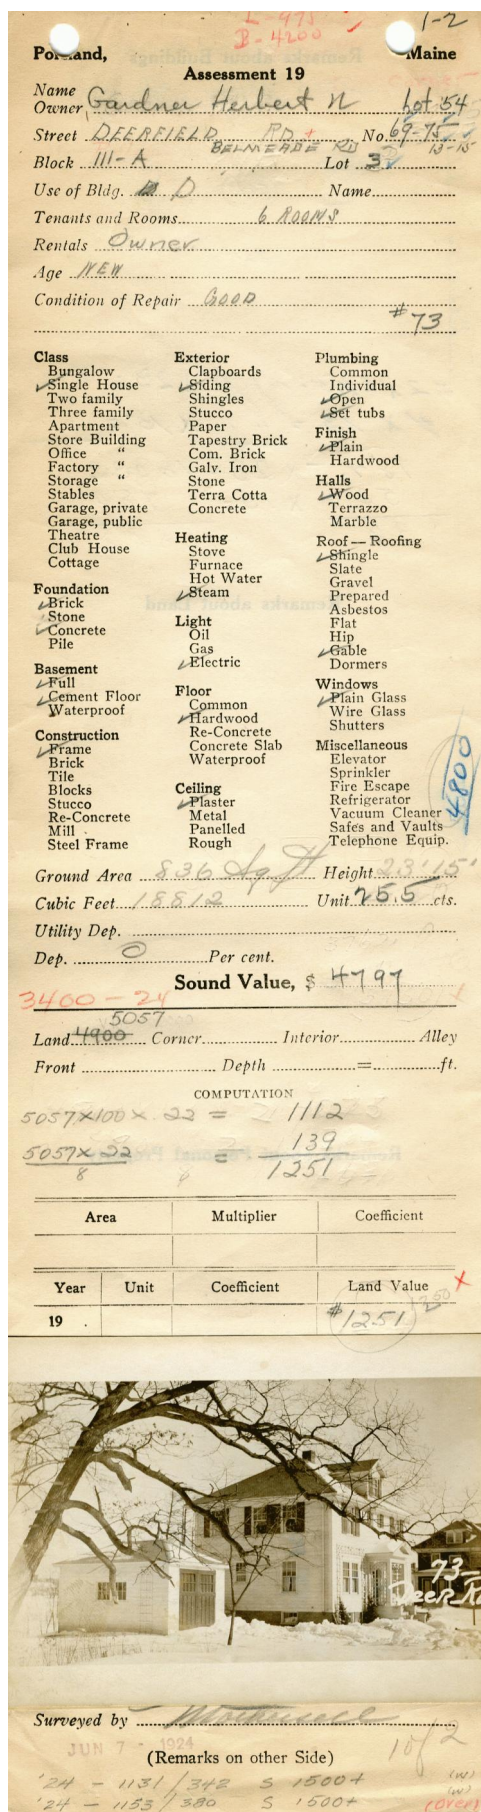 L-975
B-4200
1-2
Portland, Maine
Assessment 19
Name
Owner Gardner Herbert N Lot 54
Street DEERFIELD RD + No. 69-75
BELMEADE RD 13-15
Block 111-A Lot 3
Use of Bldg. D Name
Tenants and Rooms 6 ROOMS
Rentals Owner
Age NEW
Condition of Repair GOOD
#73
Class
Bungalow
Single House
Two family
Three family
Apartment
Store Building
Office "
Factory "
Storage "
Stables
Garage, private
Garage, public
Theatre
Club House
Cottage
Foundation
Brick
Stone
Concrete
Pile
Basement
Full
Cement Floor
Waterproof
Construction
Frame
Brick
Tile
Blocks
Stucco
Re-Concrete
Mill
Steel Frame
Exterior
Clapboards
Siding
Shingles
Stucco
Paper
Tapestry Brick
Com. Brick
Galv. Iron
Stone
Terra Cotta
Concrete
Heating
Stove
Furnace
Hot Water
Steam
Light
Oil
Gas
Electric
Floor
Common
Hardwood
Re-Concrete
Concrete Slab
Waterproof
Ceiling
Plaster
Metal
Panelled
Rough
Plumbing
Common
Individual
Open
Set tubs
Finish
Plain
Hardwood
Halls
Wood
Terrazzo
Marble
Roof — Roofing
Shingle
Slate
Gravel
Prepared
Asbestos
Flat
Hip
Gable
Dormers
Windows
Plain Glass
Wire Glass
Shutters
Miscellaneous
Elevator
Sprinkler
Fire Escape
Refrigerator
Vacuum Cleaner
Safes and Vaults
Telephone Equip.
4800
Ground Area 836 Sq ft Height 23'15'
Cubic Feet 18812 Unit 25.5 cts.
Utility Dep.
Dep. 0 Per cent.
Sound Value, $ 4797
3400-24
5057
Land 4900 Corner Interior Alley
Front Depth = ft.
COMPUTATION
5057x100x.22 = 1112
5057x22 = 139
8 1251
Area Multiplier Coefficient
Year Unit Coefficient Land Value
19 #1251 1250
73-
Deer Rd
Surveyed by
JUN 7 - 1924
1 of 2
(Remarks on other Side)
'24 - 1131/342 S 1500+ (w)
'24 - 1153/380 S 1500+ (w)
(over)